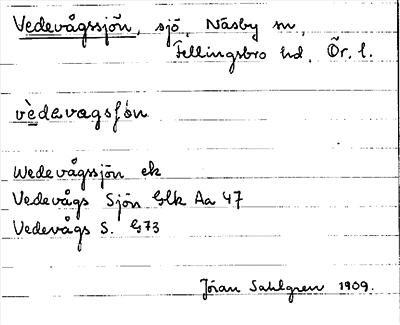 Vedevågssjön, sjö, Näsby sn,
Fellingsbro hd, Ör. l.
vèdevagsʃön
Wedevågssjön ek
Vedevågs Sjön Glk Aa 47
Vedevågs S. G73
Jöran Sahlgren 1909.